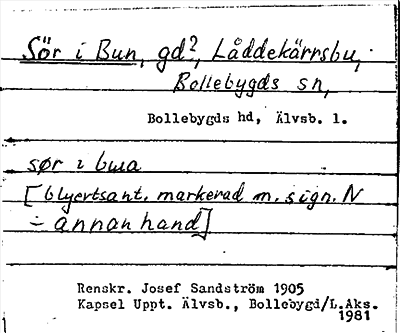 Sör i Bun, gd?, Låddekärrsbu,
Bollebygds sn,
Bollebygds hd, Älvsb. l.
sør i bɯa
[blyertsant. markerad m. sign. N
÷ annan hand]
Renskr. Josef Sandström 1905
Kapsel Uppt. Älvsb., Bollebygd/L.Aks.
1981